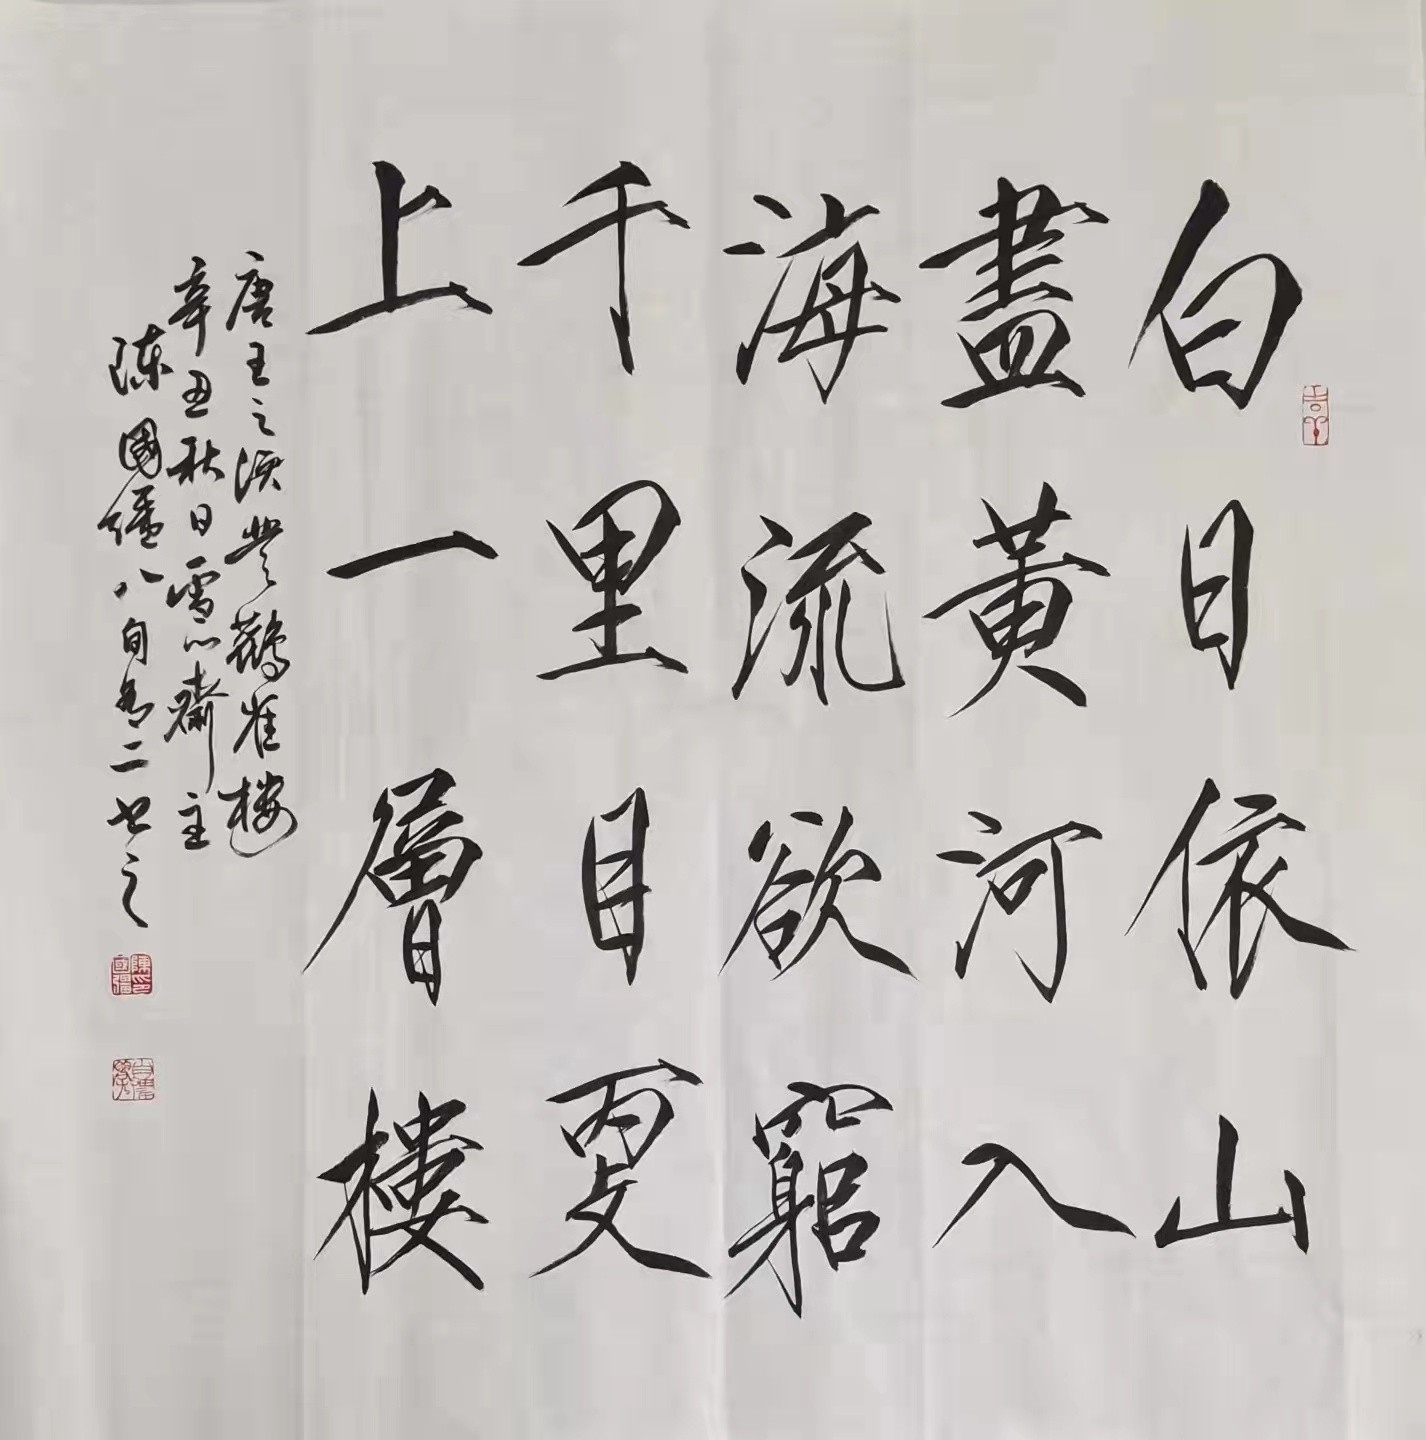 白日依山
盡黃河入
海流欲窮
千里目更
上一層樓
唐王之渙登鸛雀樓
辛丑秋日雪心齋主
陳國疆八旬有二书之
陳國疆印